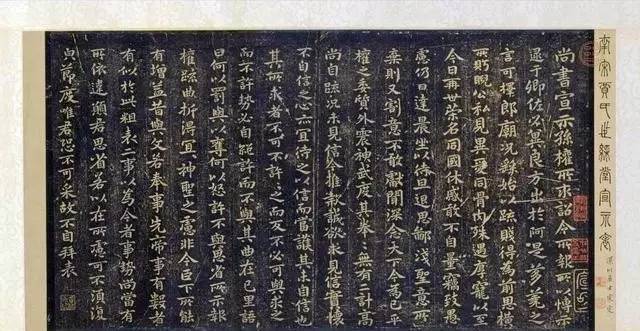 南宋賈氏世綵堂宣示表
尚書宣示孫權所求詔令所報所以博示
逮于卿佐必冀良方出於阿是芻蕘之
言可擇郎廟況繇始以疏賤得為前恩橫
所眄睨公私見異愛同骨肉殊遇厚寵以至
今日再世榮名同國休慼敢不自量竊致愚
慮仍日達晨坐以待旦退思鄙淺聖意所
棄則又割意不敢獻聞深念天下今為已平
權之委質外震神武度其拳拳無有二計高
尚自疏況未見信今推款誠欲求見信實懷
不自信之心亦宜待之以信而當護其未自信也
其所求者不可不許許之而反不必可與求之
而不許勢必自絕許而不與其曲在己里語
曰何以罰與以奪何以怒許不與思省所示報
權疏曲折得宜宜神聖之慮非今臣下所能
有增益昔與文若奉事先帝事有數者
有似於此粗表二事以為今者事勢尚當有
所依違願君思省若以在所慮可不須須
與節度唯君恐不可采故不自拜表